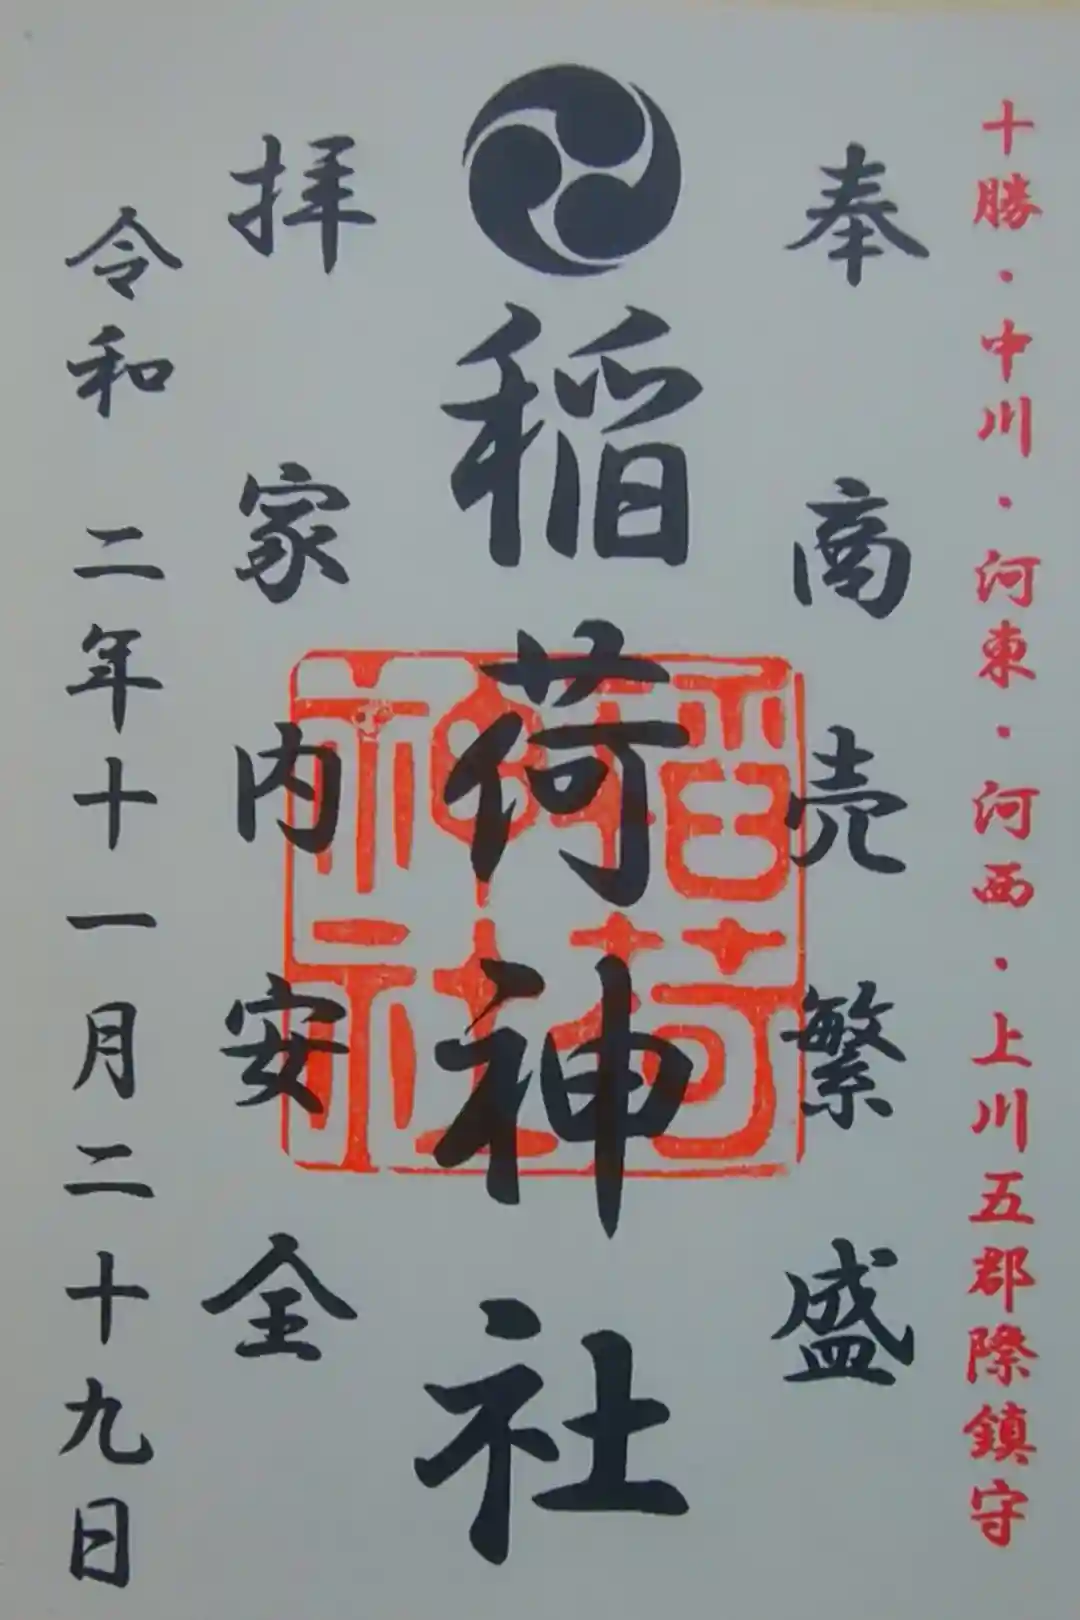 十勝・中川・河東・河西・上川五郡際鎮守
奉
商売繁盛
稲荷神社
稲荷神社
拝
家内安全
令和二年十一月二十九日